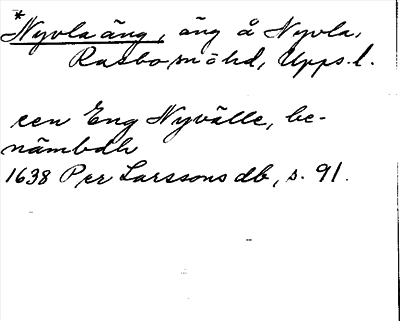 *
Nyvla äng, äng å Nyvla,
Rasbo sn o hd, Upps. l.
een Eng Nyvälle, be-
nämbdh
1638 Per Larssons db, s. 91.